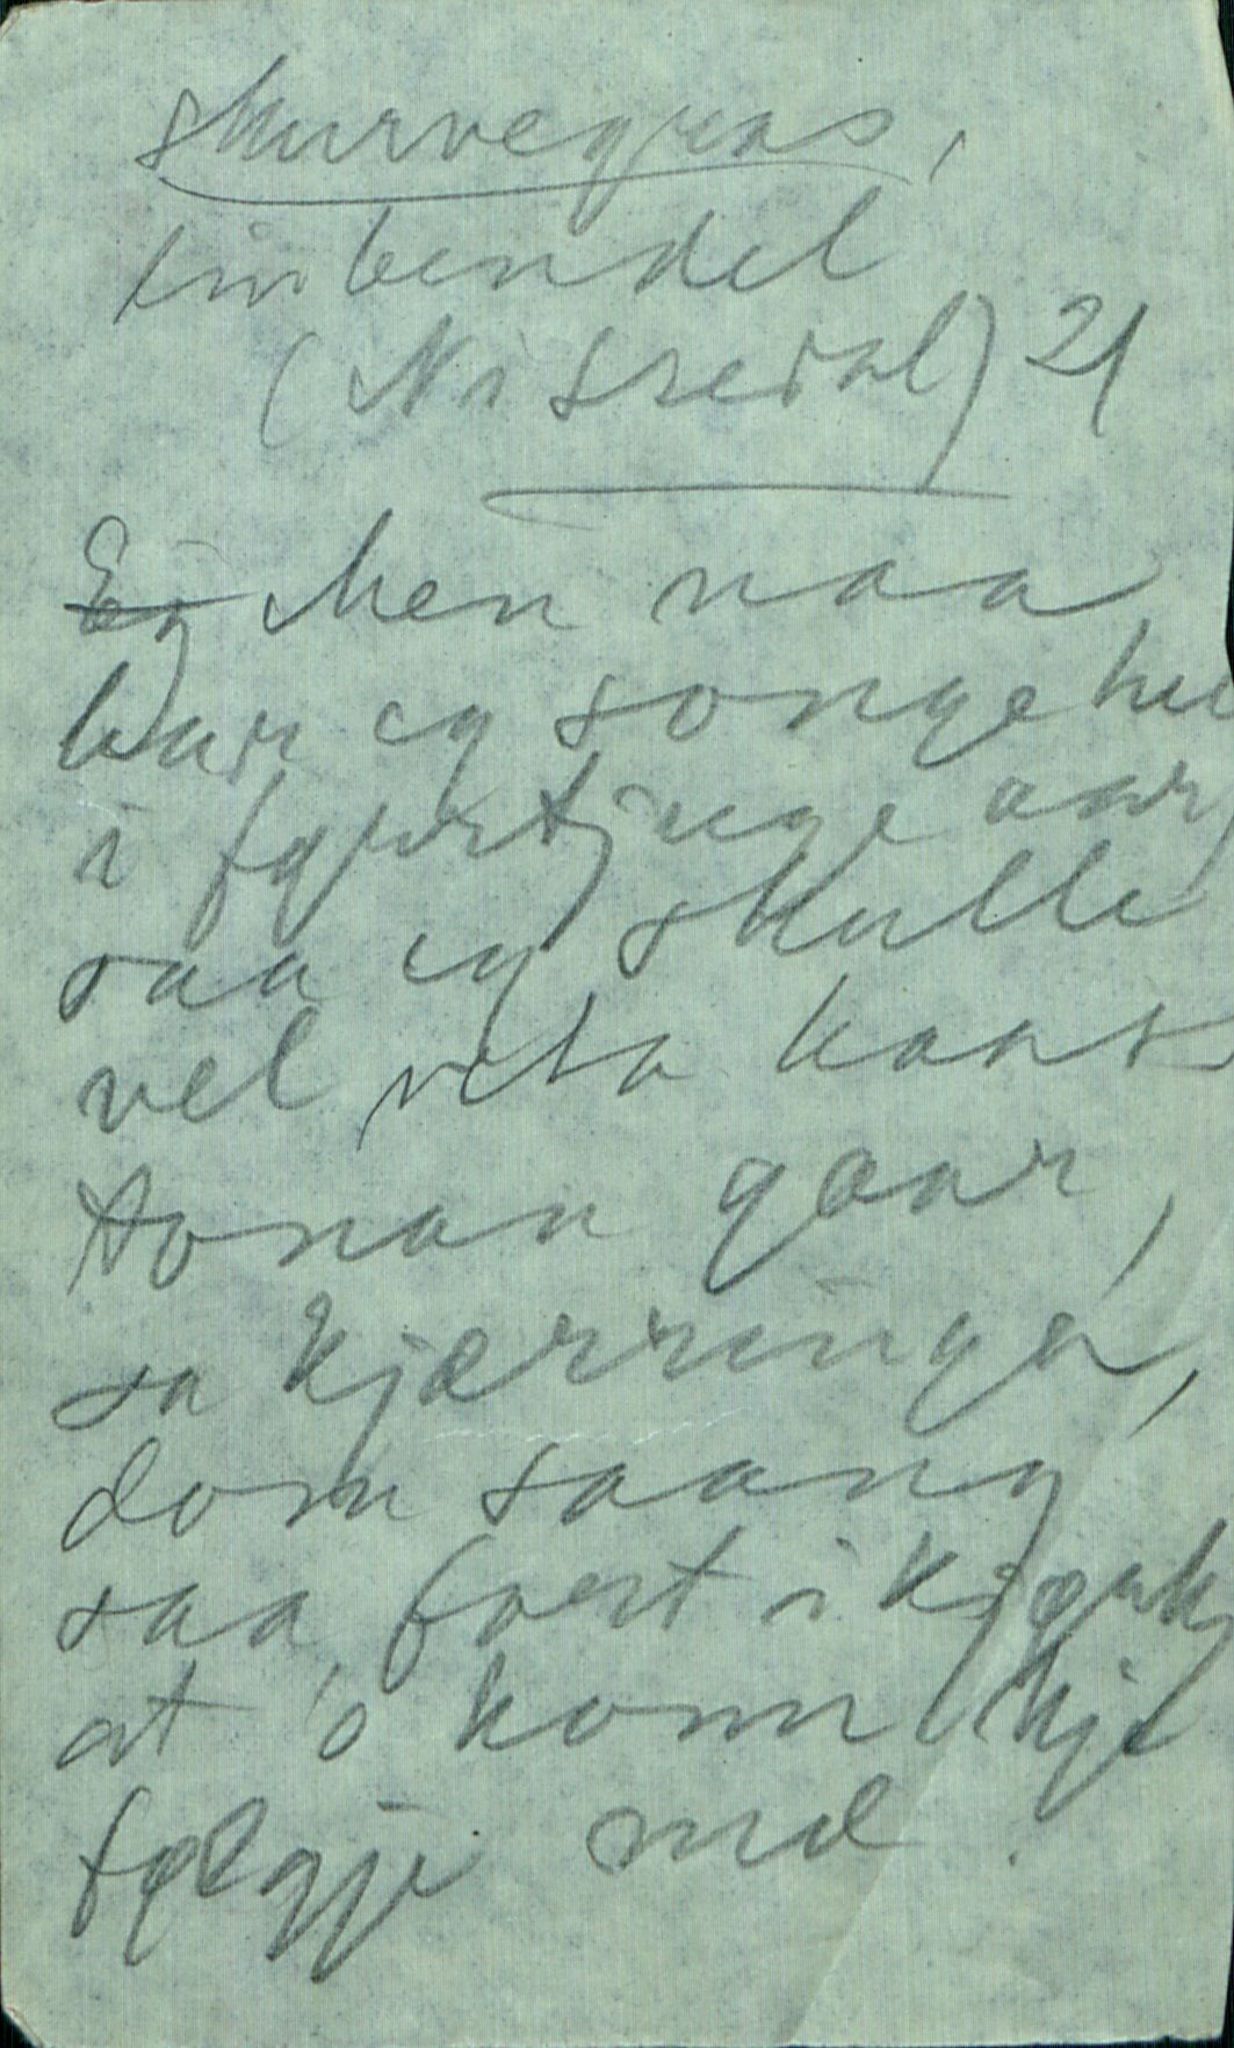 skurvegras,
tinbendel
(Nissedal) 21
Eg Men naa
har eg songe
i fyrtjuge aar,
saa eg skulle
vel vita koss
tonan gaar,
sa kjærringa,
dom saang
saa fort i kjørk
at o konn ikje
følgje mæ.